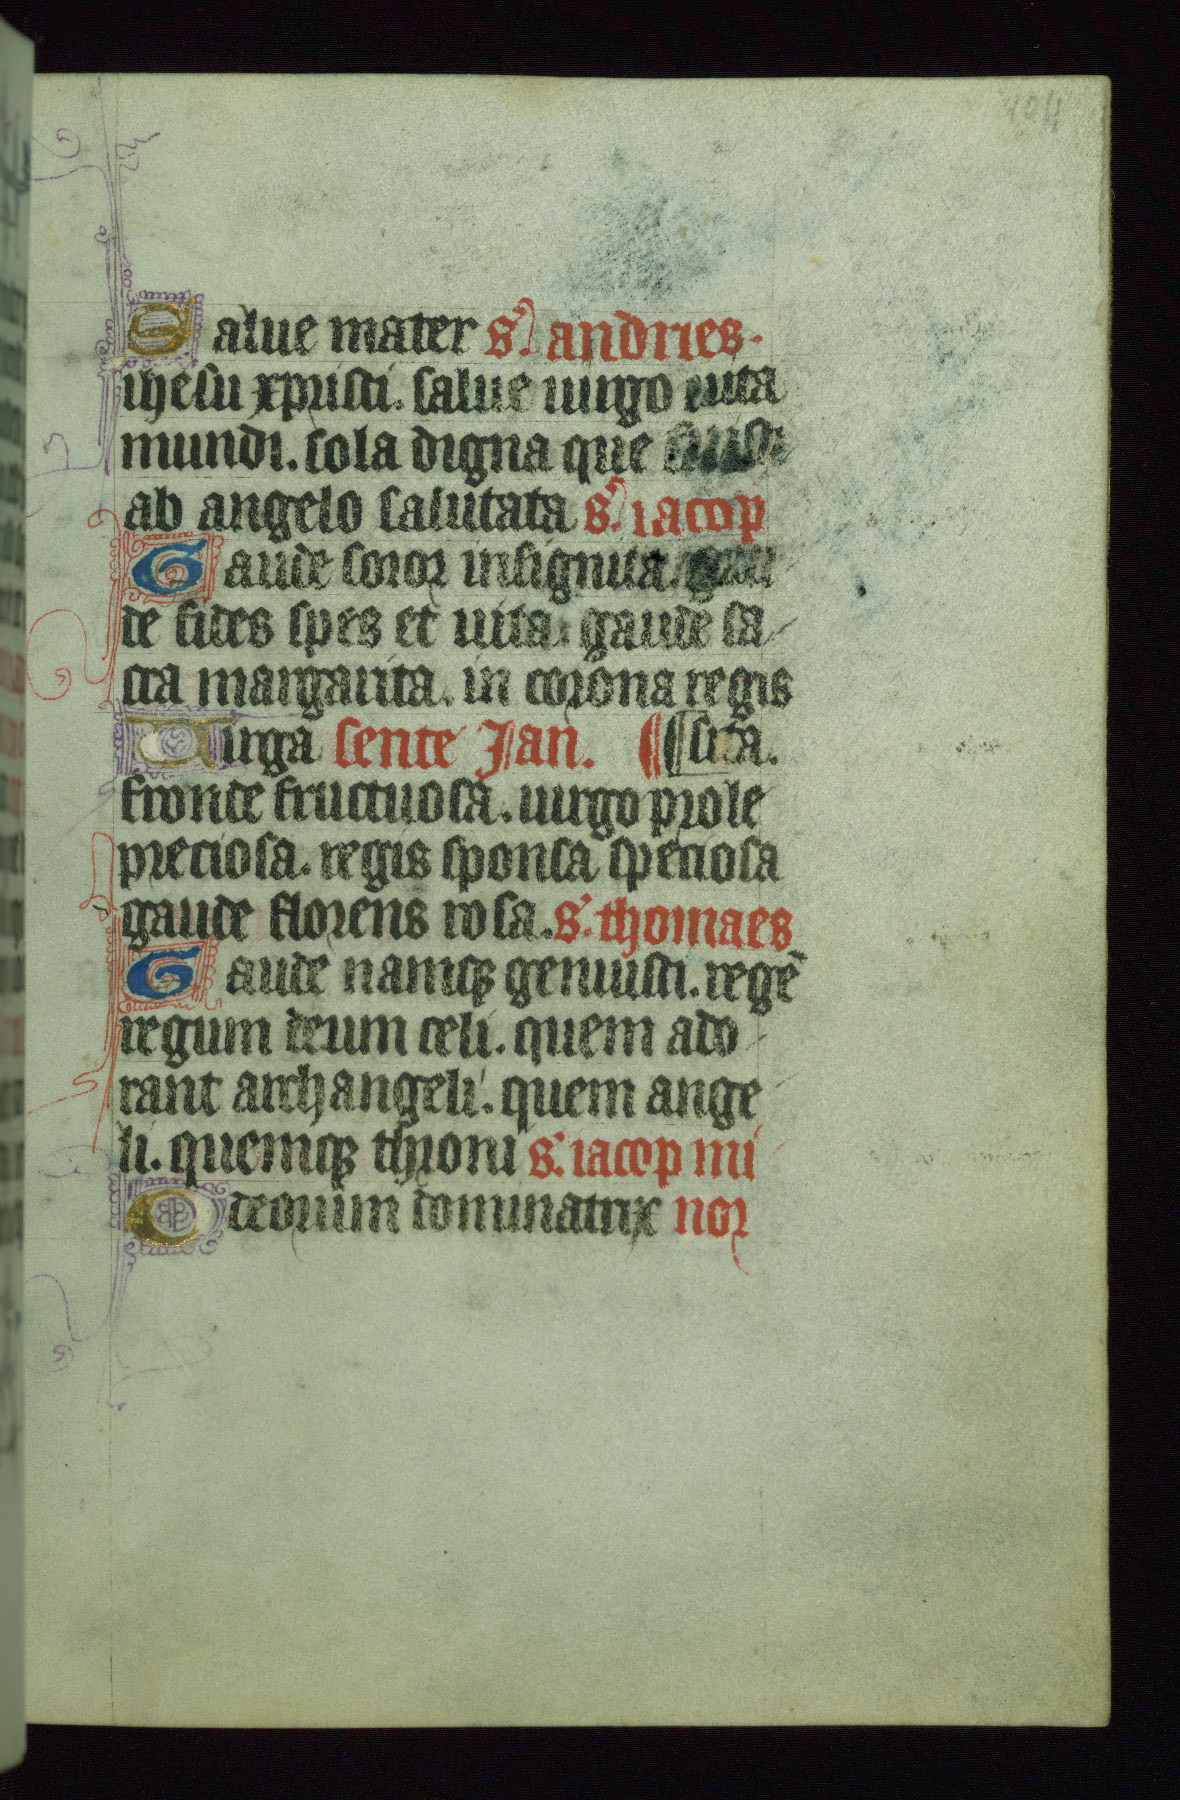 Salue mater s. andries.
ihesu xpristi. salue uirgo uita
mundi. sola digna que fuisti
ab angelo salutata s. iacop
Gaude soror insignita. gau
de fides spes et uita. gaude sa
cta margarita. in corona regis
Uirga sente Jan. sita.
fronde fructuosa. uirgo prole
preciosa. regis sponsa speciosa
gaude florens rosa. s. thomaes
Gaude namqz genuisti. regē
regum deum celi. quem ado
rant archangeli. quem ange
li. quemqz throni s. iacop mi
O deorum dominatrix nor